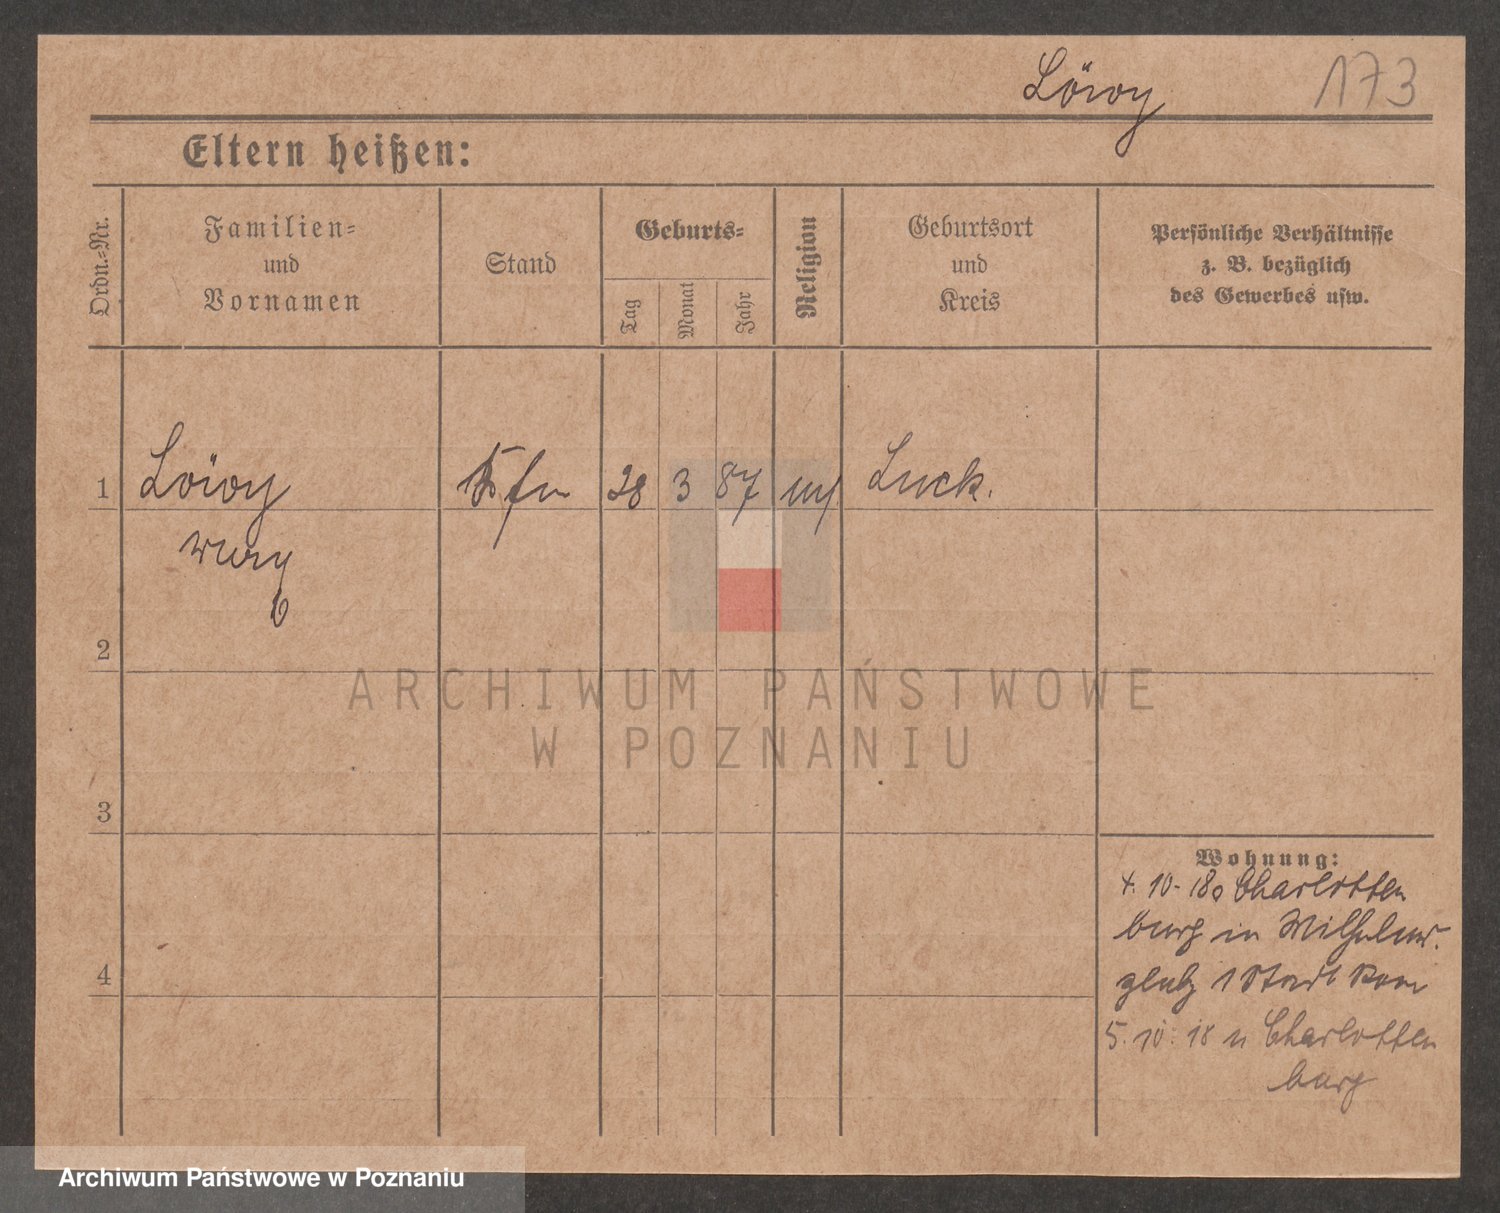 Löwy 173
Eltern heißen:
Ordn.-Nr.
Familien-
und
Vornamen
Stand
Geburts-
Tag
Monat
Jahr
Religion
Geburtsort
und
Kreis
Persönliche Verhältnisse
z. B. bezüglich
des Gewerbes usw.
1 Löwy 28 3 87 Luck.
2
3
4
Wohnung:
4. 10. 18 Charlotten
burg in Wilhelms.
platz 1 Stadt
5. 10. 18 n Charlotten
burg
ARCHIWUM PAŃSTWOWE
W POZNANIU
Archiwum Państwowe w Poznaniu